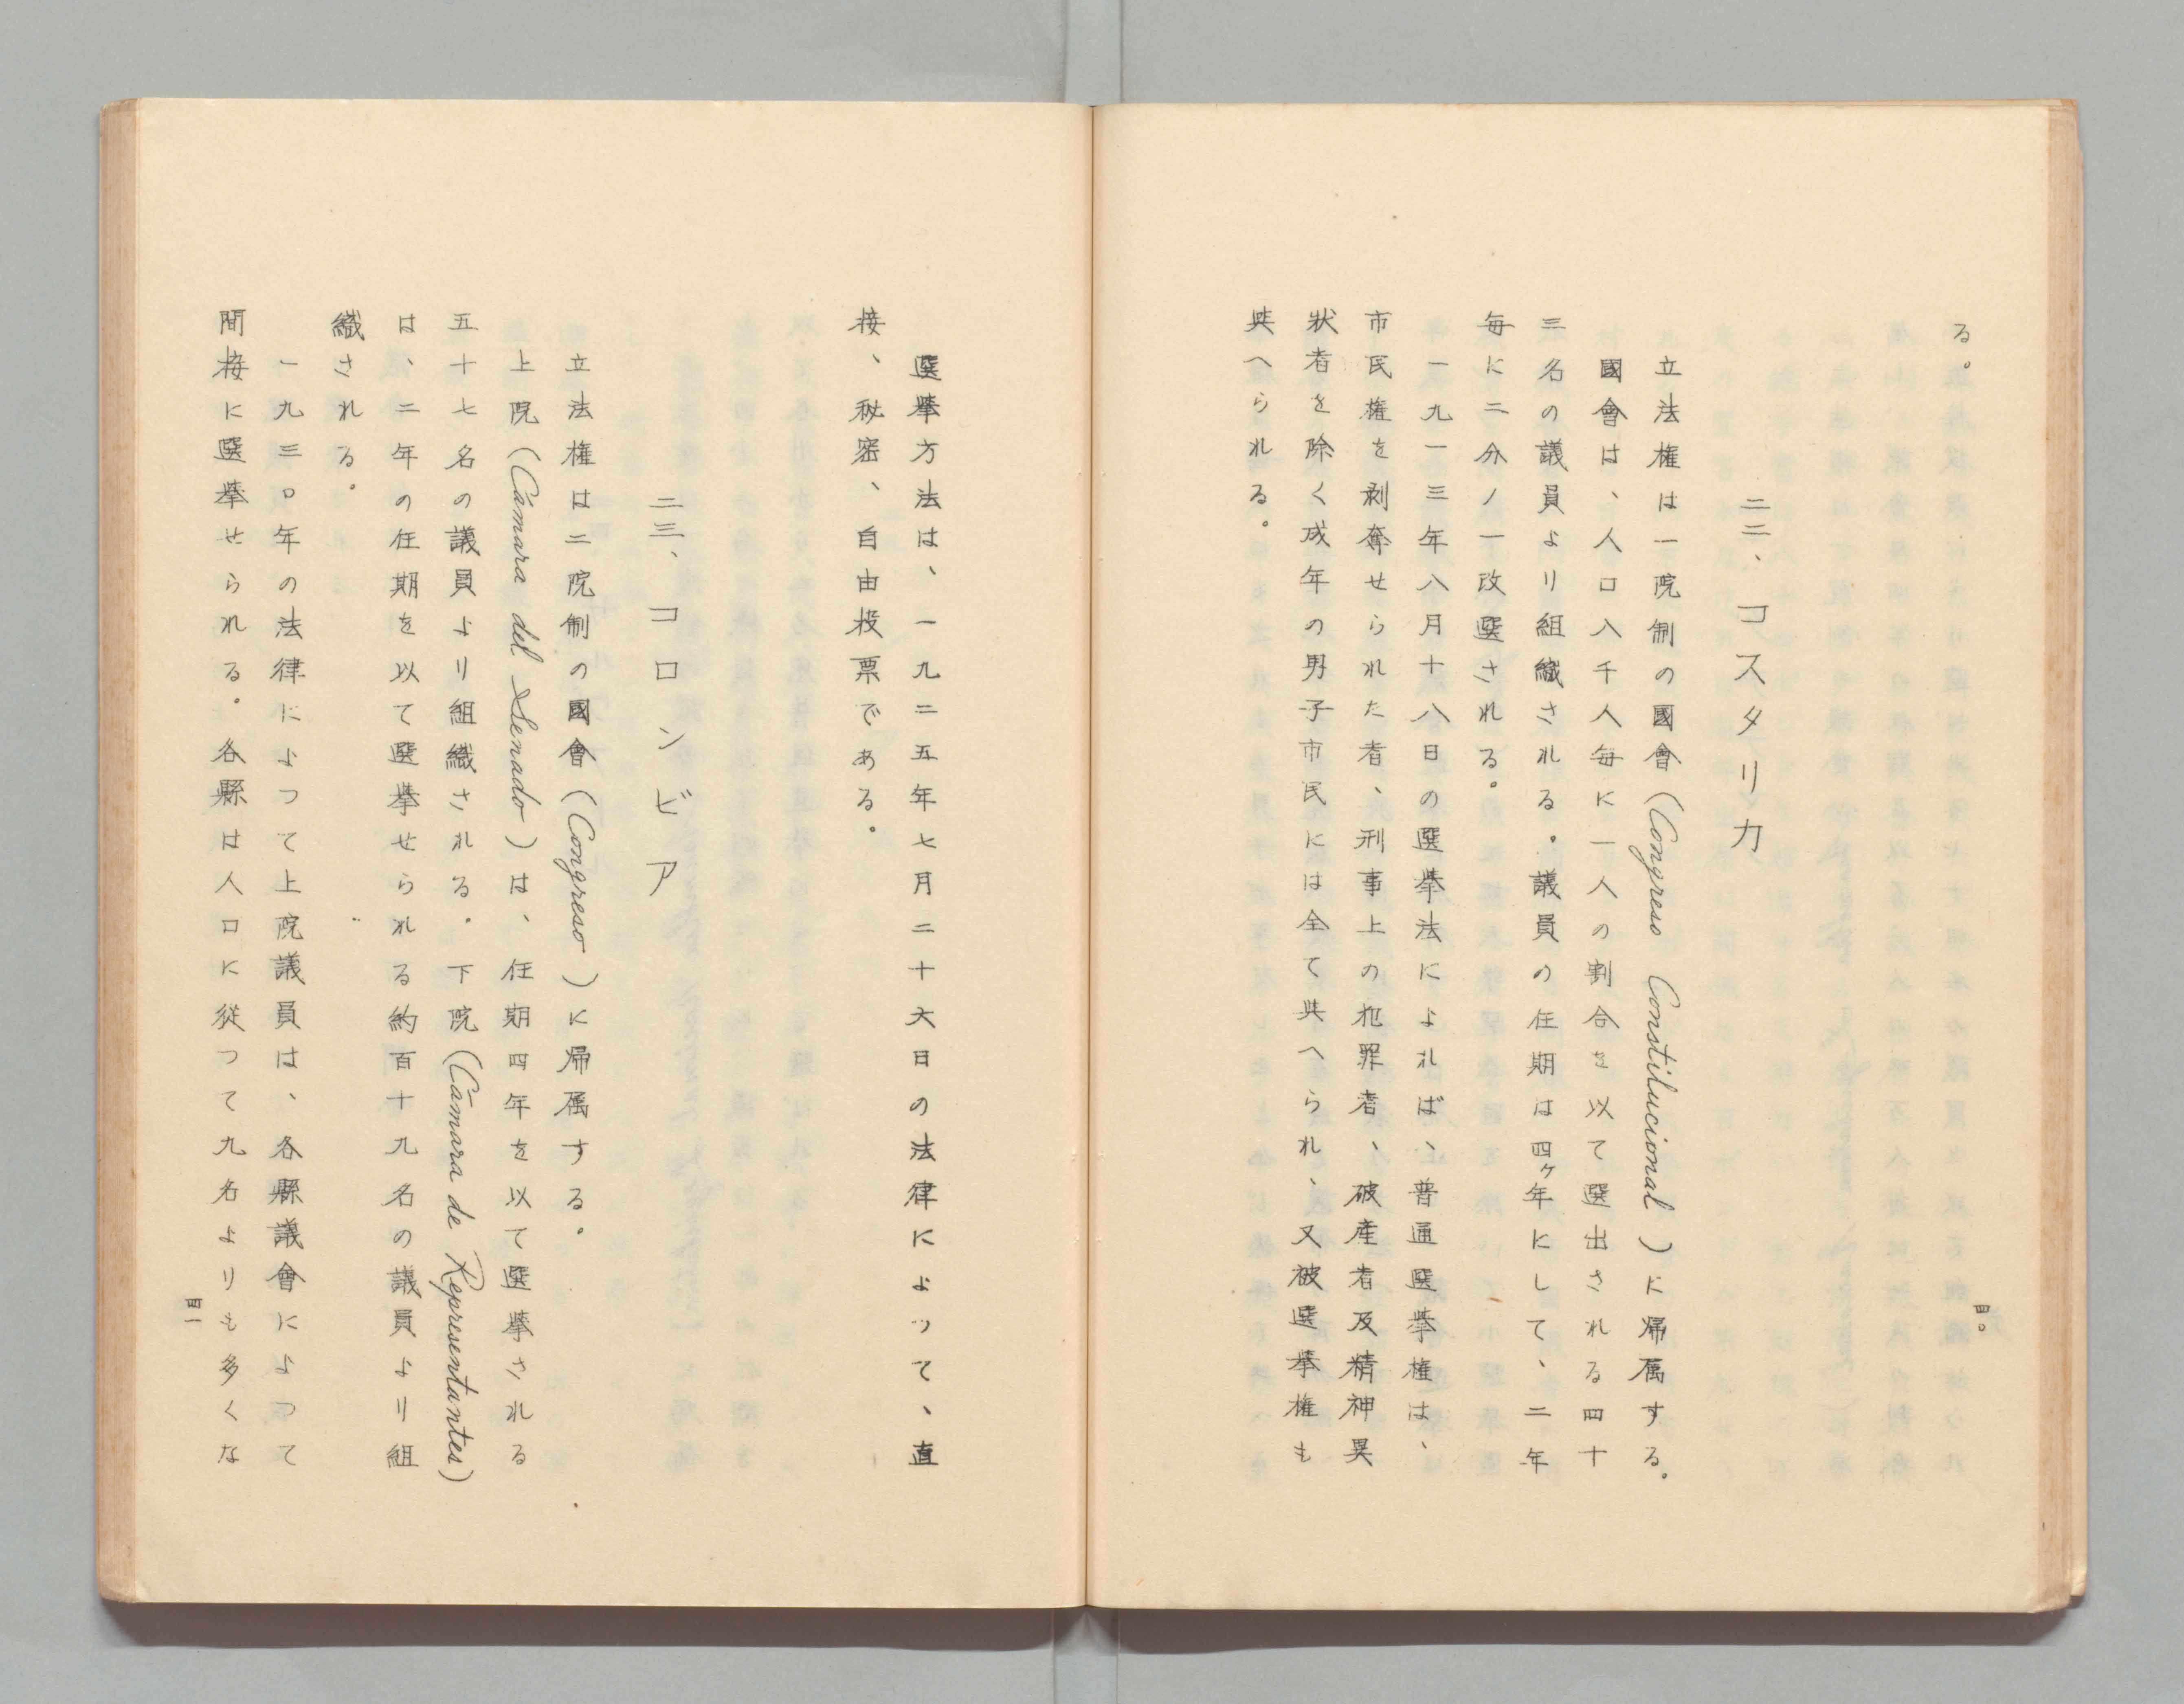 る。
二二、コスタリカ
立法権は一院制の國會(Congreso Constilucional)に帰属する。
國會は、人口八千人毎に一人の割合を以て選出される四十
三名の議員より組織される。議員の任期は四ヶ年にして、二年
毎に二分ノ一改選される。
一九一三年八月十八日の選挙法によれば、普通選挙権は、
市民権を剥奪せられた者、刑事上の犯罪者、破産者及精神異
状者を除く成年の男子市民には全て與へられ、又被選挙権も
與へられる。
四〇
選挙方法は、一九二五年七月二十六日の法律によつて、直
接、秘密、自由投票である。
二三、コロンビア
立法権は二院制の國會(Congreso)に帰属する。
上院(Cámara del Senado)は、任期四年を以て選挙される
五十七名の議員より組織される。下院(Cámara de Representantes)
は、二年の任期を以て選挙せられる約百十九名の議員より組
織される。
一九三〇年の法律によつて上院議員は、各縣議會によつて
間接に選挙せられる。各縣は人口に従つて九名よりも多くな
四一